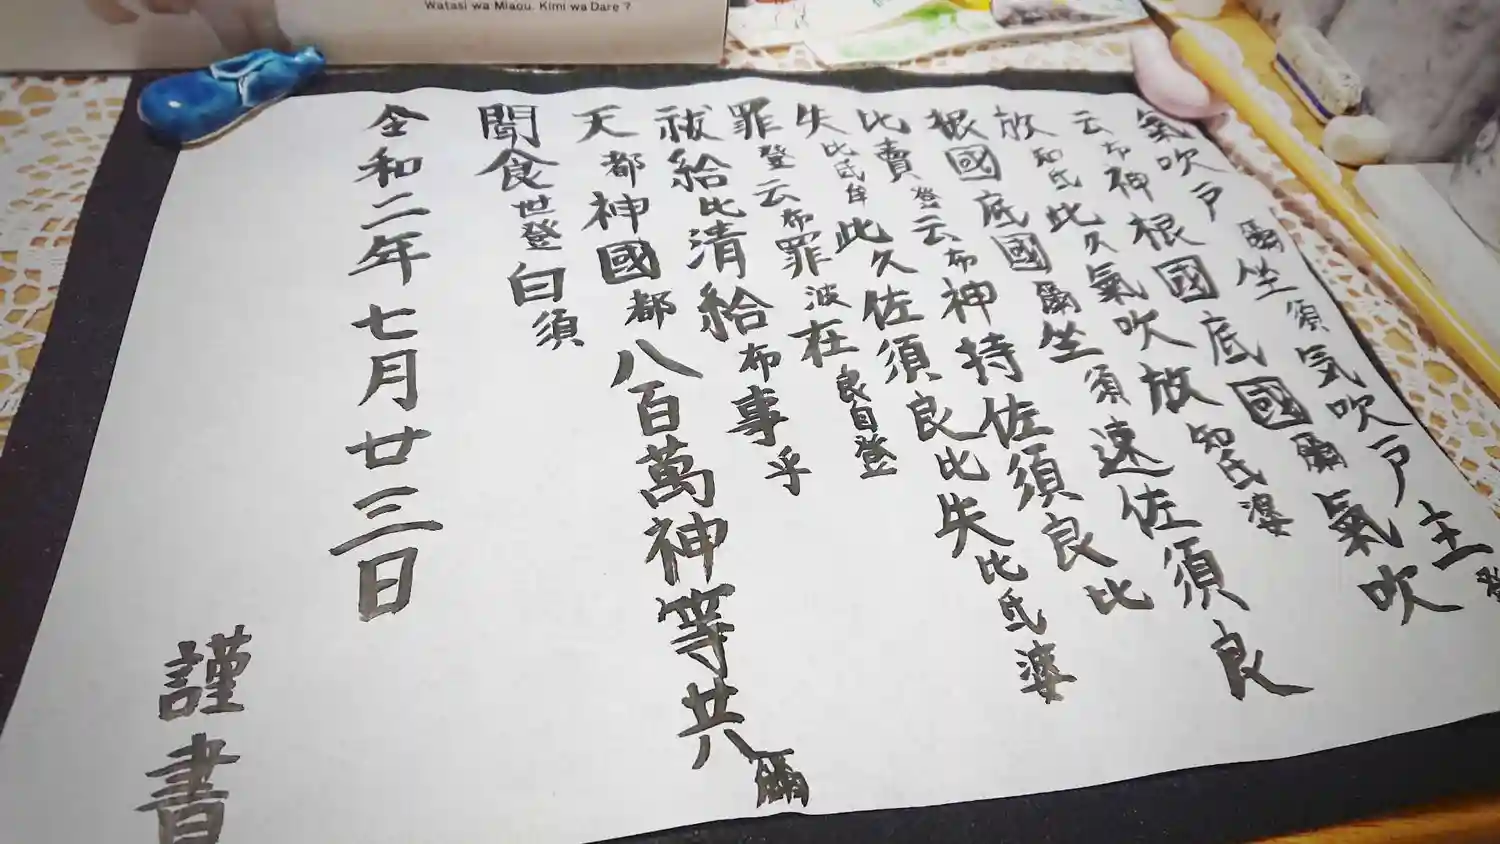 Watasi wa Miaou. Kimi wa Dare ?
氣吹戸爾坐須気吹戸主登
云布神根國底國爾氣吹
放知氐此久氣吹放知氐婆
根國底國爾坐須速佐須良
比賣登云布神持佐須良比
失比氐牟此久佐須良比失比氐婆
罪登云布罪波在良自登
祓給比清給布事乎
天都神國都八百萬神等共爾
聞食世登白須
令和二年七月廿三日
謹書